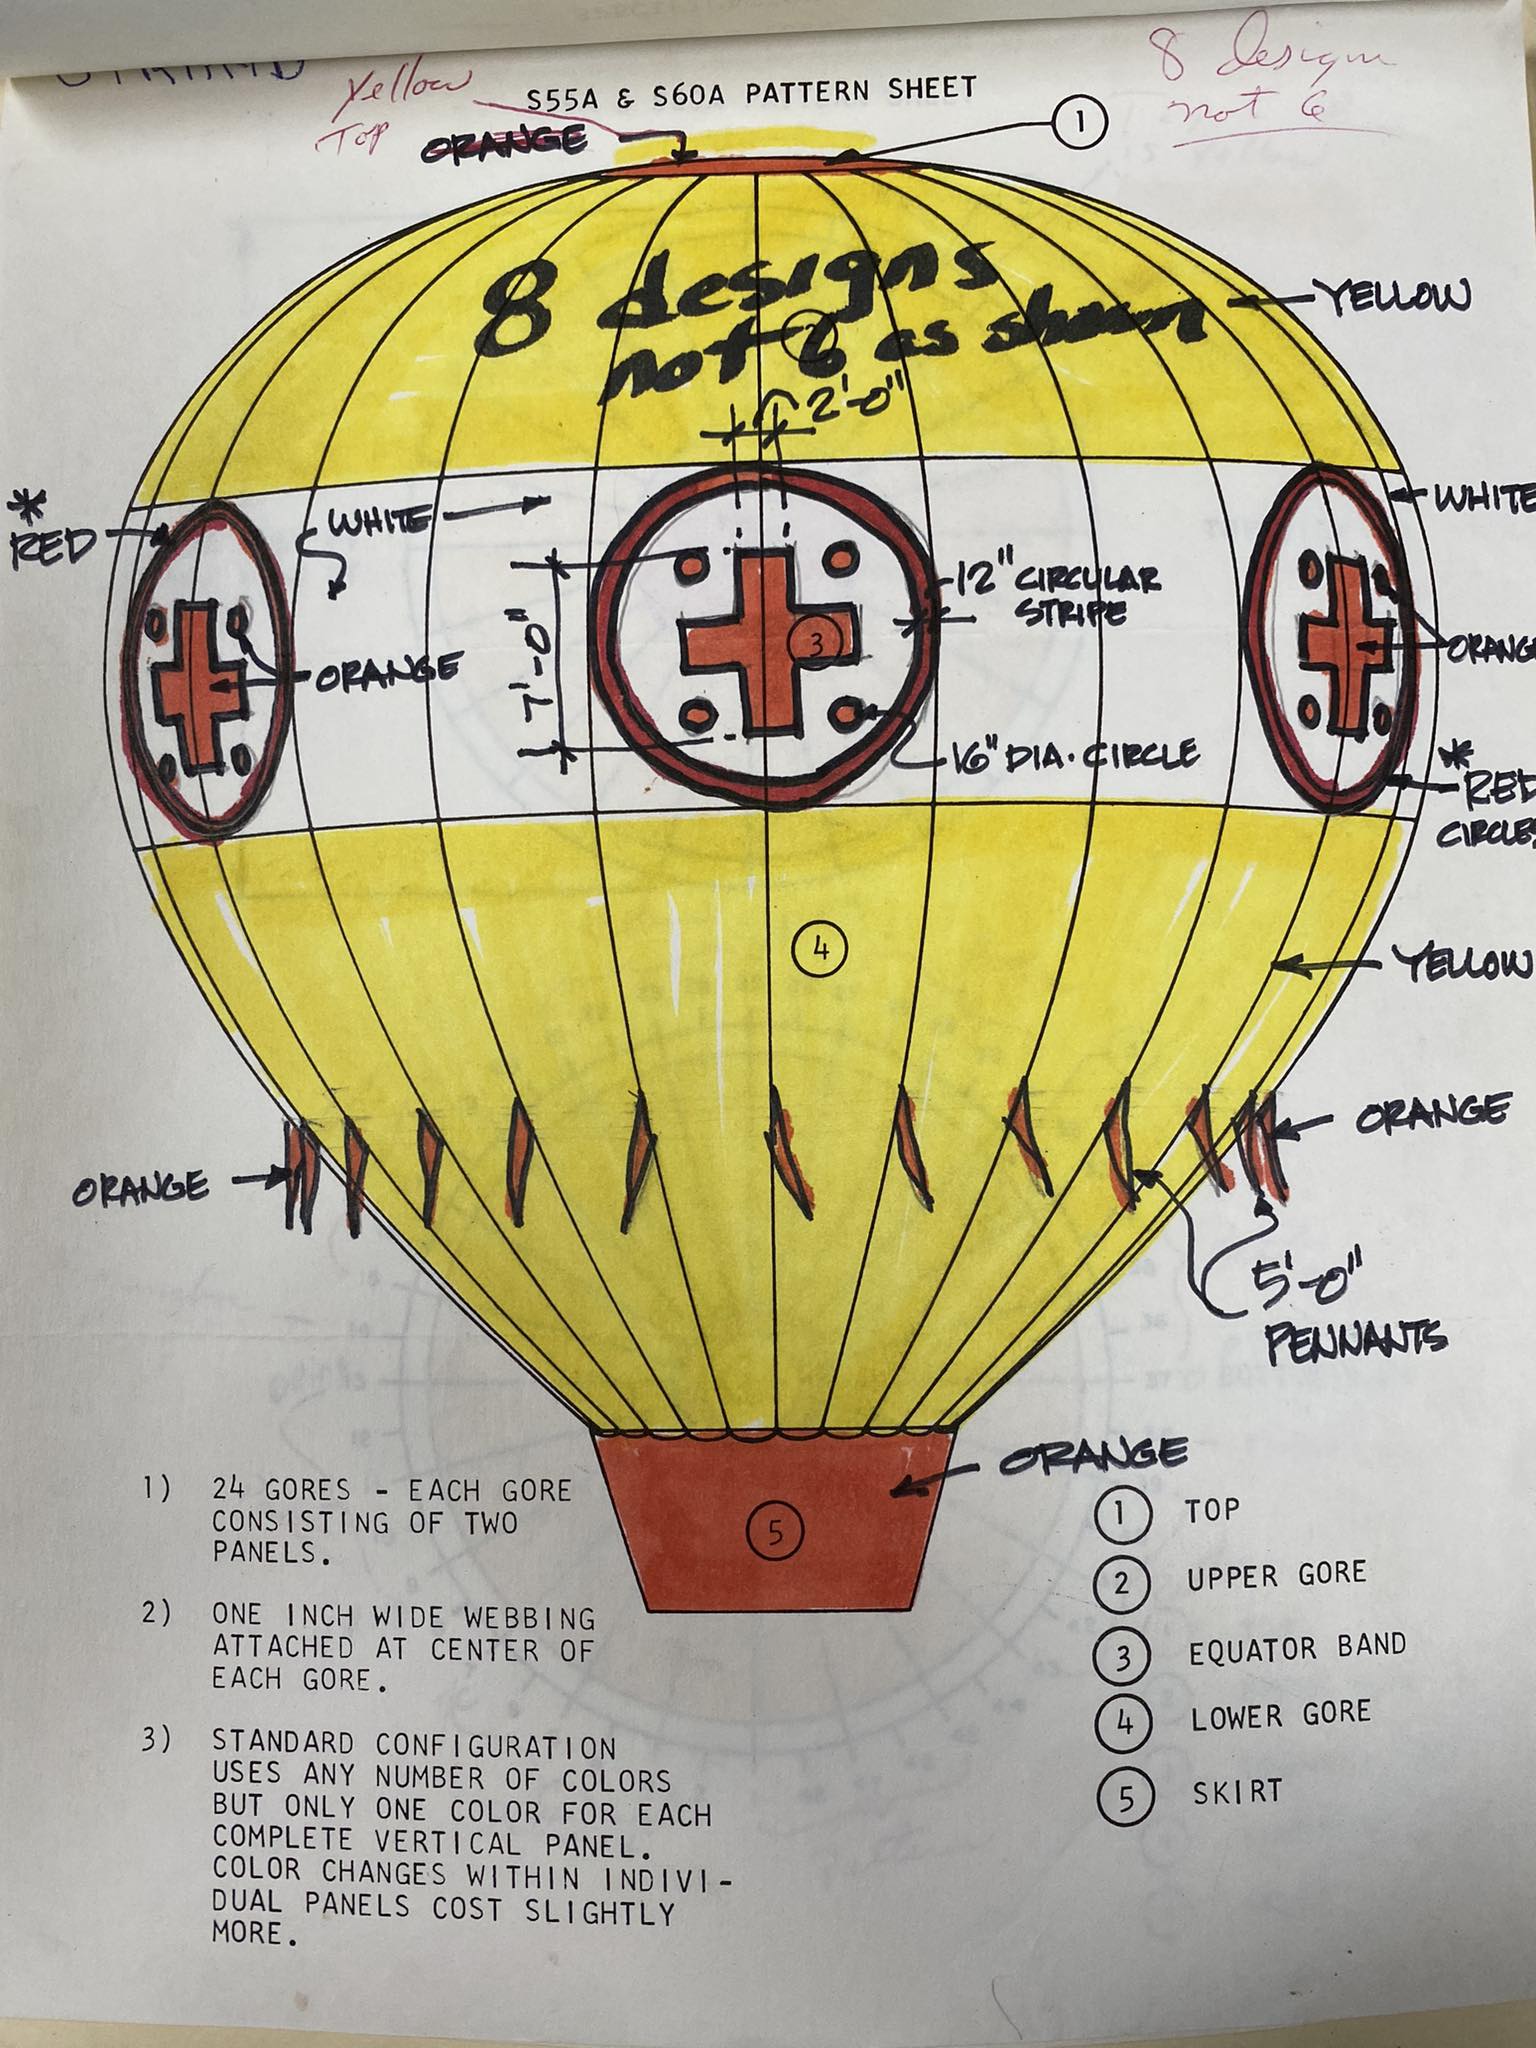 Yellow
Top
S55A & S60A PATTERN SHEET
8 design
not 6
ORANGE
1
8 designs
not 6 as shown
2
YELLOW
2'-0"
* RED
WHITE
WHITE
12" CIRCULAR
STRIPE
7'-0"
3
ORANGE
ORANGE
16" DIA. CIRCLE
* RED
CIRCLES
4
YELLOW
ORANGE
ORANGE
5'-0"
PENNANTS
ORANGE
5
1) 24 GORES - EACH GORE
CONSISTING OF TWO
PANELS.
2) ONE INCH WIDE WEBBING
ATTACHED AT CENTER OF
EACH GORE.
3) STANDARD CONFIGURATION
USES ANY NUMBER OF COLORS
BUT ONLY ONE COLOR FOR EACH
COMPLETE VERTICAL PANEL.
COLOR CHANGES WITHIN INDIVI-
DUAL PANELS COST SLIGHTLY
MORE.
1 TOP
2 UPPER GORE
3 EQUATOR BAND
4 LOWER GORE
5 SKIRT